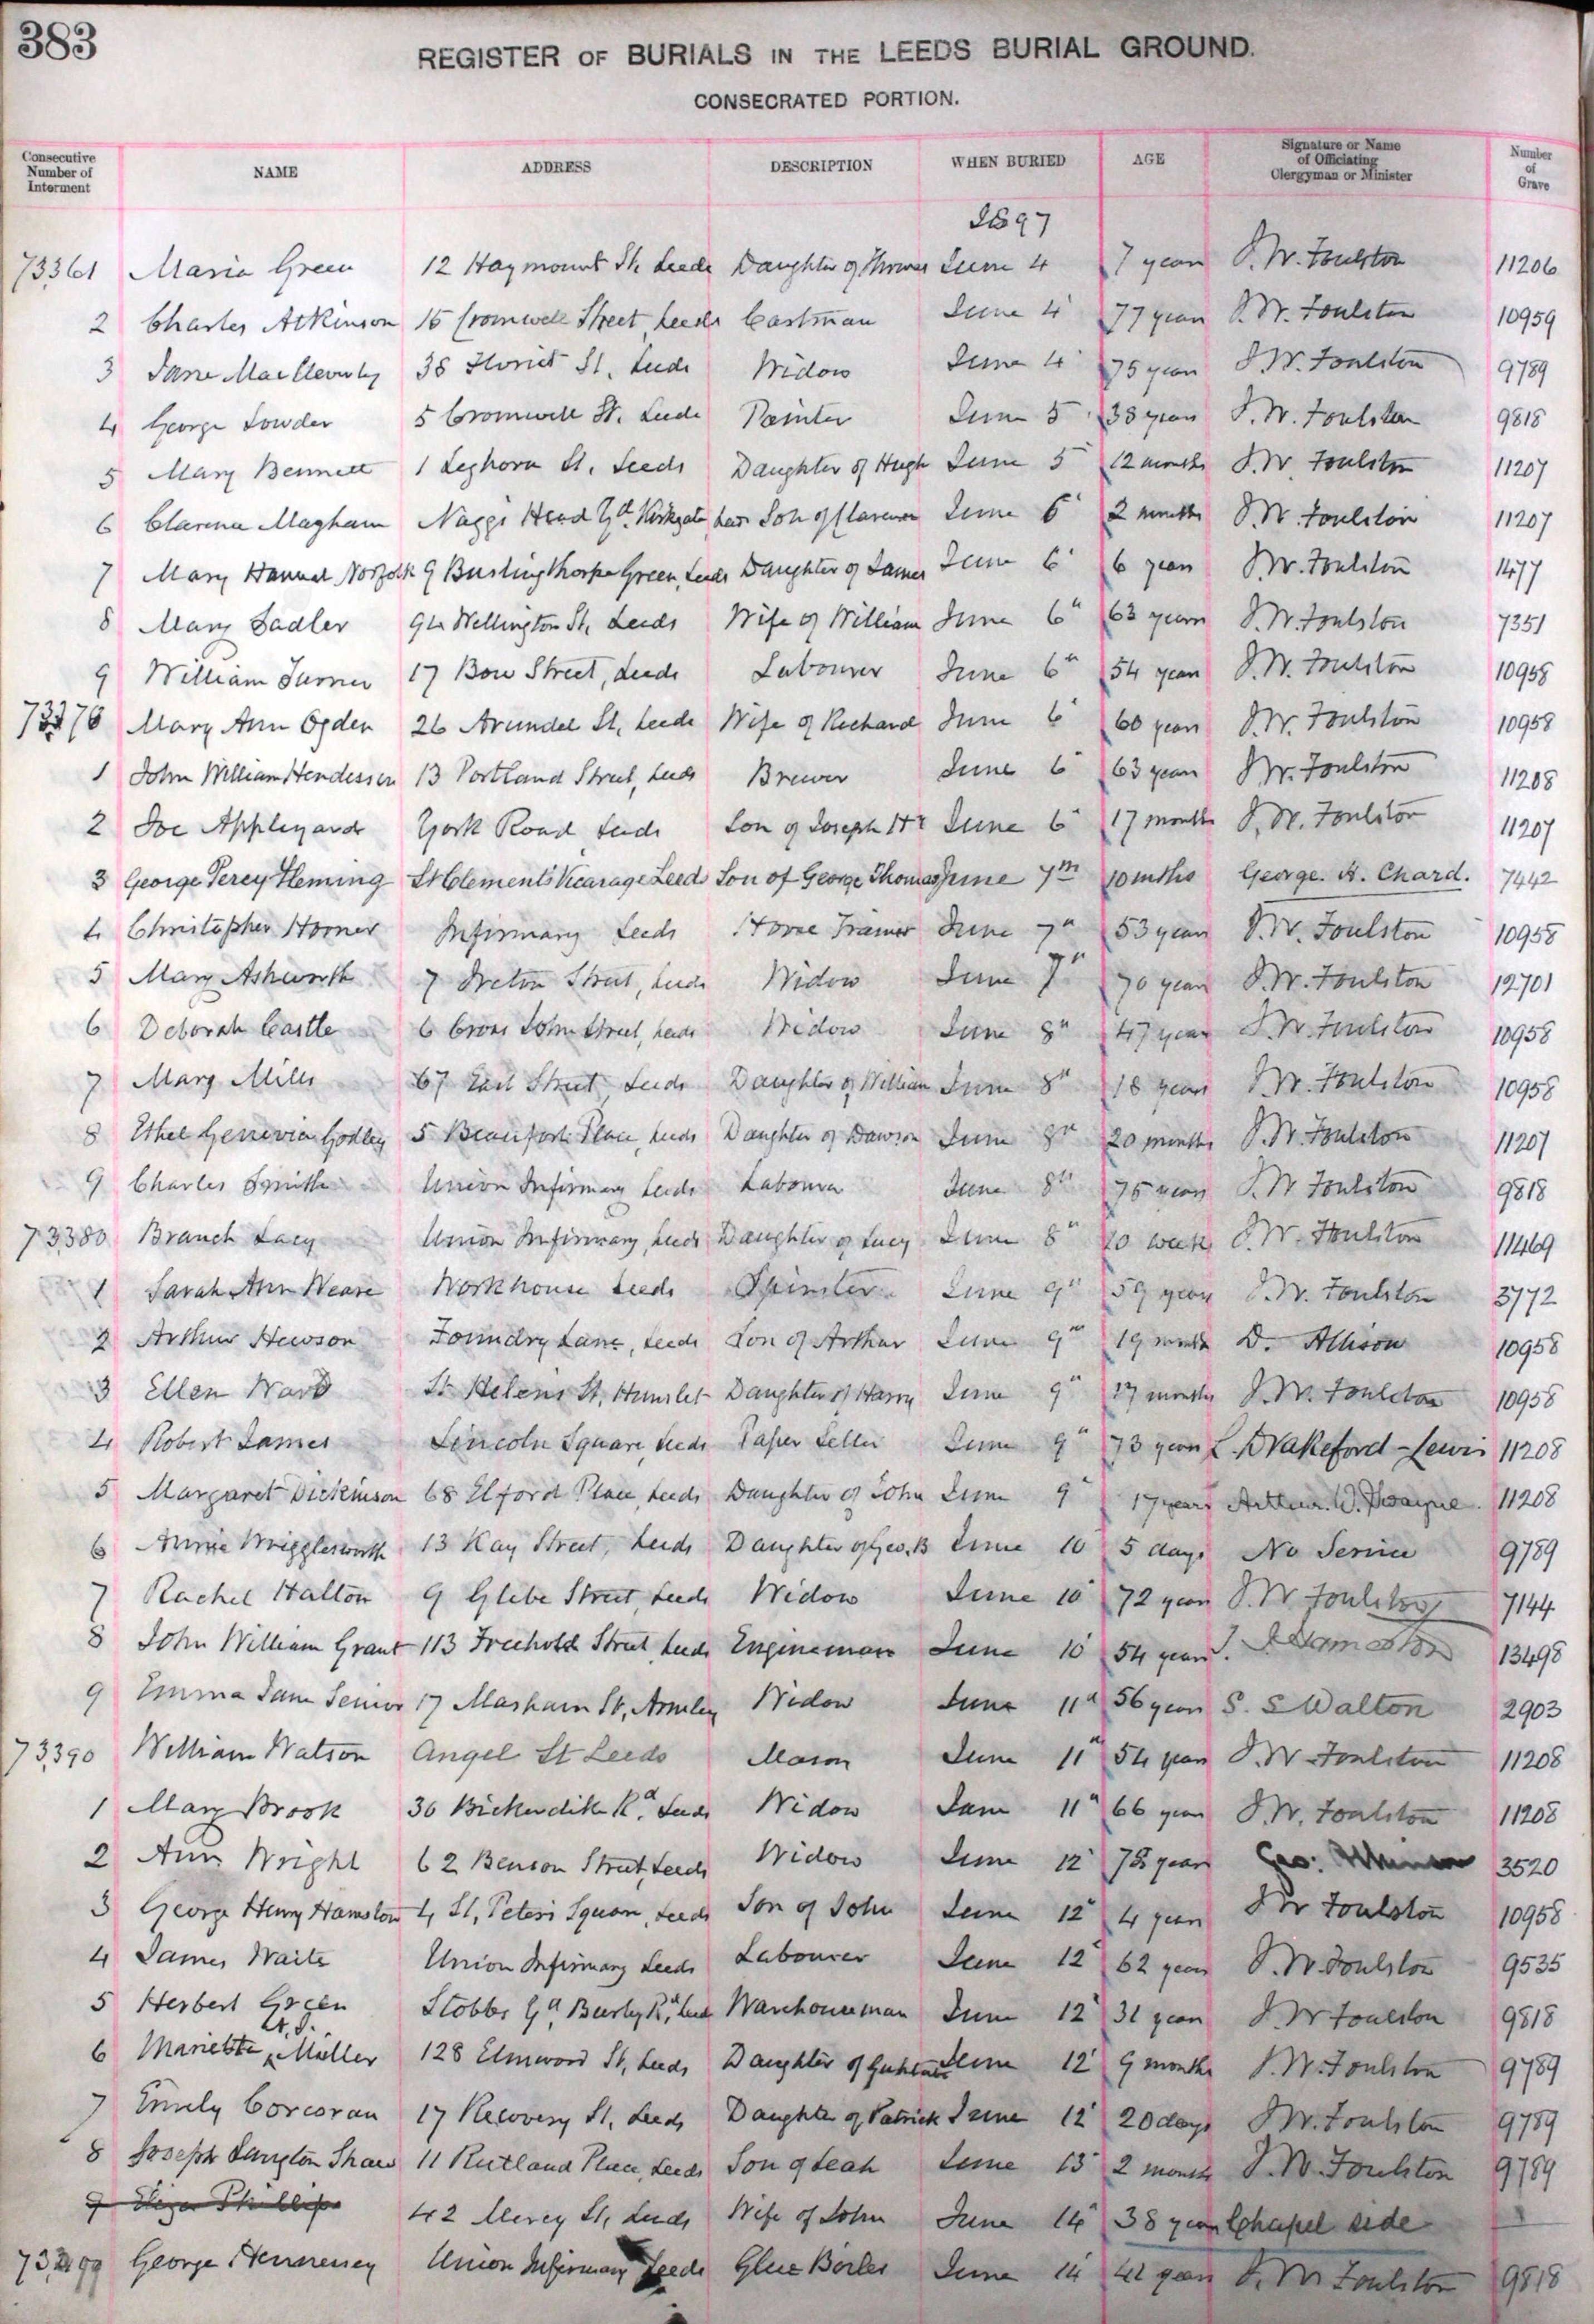 383
REGISTER OF BURIALS IN THE LEEDS BURIAL GROUND.
CONSECRATED PORTION.
Consecutive Number of Interment NAME ADDRESS DESCRIPTION WHEN BURIED AGE Signature or Name of Officiating Clergyman or Minister Number of Grave
1897
73361 Maria Green 12 Haymount St, Leeds Daughter of Thomas June 4 7 years J. W. Foulston 11206
2 Charles Atkinson 15 Cromwell Street, Leeds Cartman June 4 77 years J. W. Foulston 10959
3 Jane 38 St, Leeds Widow June 4 75 years J. W. Foulston 9789
4 George Lowder 5 Cromwell St. Leeds Painter June 5 38 years J. W. Foulston 9818
5 Mary Bennett 1 Leghorn St, Leeds Daughter of Hugh June 5 12 months J. W. Foulston 11207
6 Clarence Magham Naggs Head Yd. Kirkgate, Leeds Son of Clarence June 6 2 months J. W. Foulston 11207
7 Mary Hannah Norfolk 9 Buslingthorpe Green, Leeds Daughter of James June 6 6 years J. W. Foulston 1477
8 Mary Sadler 94 Wellington St, Leeds Wife of William June 6th 63 years J. W. Foulston 7351
9 William Turner 17 Bow Street, Leeds Labourer June 6th 54 years J. W. Foulston 10958
73370 Mary Ann Ogden 26 Arundel St, Leeds Wife of Richard June 6 60 years J. W. Foulston 10958
1 John William Henderson 13 Portland Street, Leeds Brewer June 6 63 years J. W. Foulston 11208
2 Joe Appleyard York Road Leeds Son of Joseph Hy June 6 17 months J. W. Foulston 11207
3 George Percy Fleming St Clement's Vicarage Leeds Son of George Thomas June 7th 10 mths George. H. Chard. 7442
4 Christopher Horner Infirmary Leeds Horse Trainer June 7th 53 years J. W. Foulston 10958
5 Mary Ashworth 7 Ireton Street, Leeds Widow June 7th 70 years J. W. Foulston 12701
6 Deborah Castle 6 Cross John Street, Leeds Widow June 8th 47 years J. W. Foulston 10958
7 Mary Mills 67 East Street Leeds Daughter of William June 8th 18 years J. W. Foulston 10958
8 Ethel Genevia Godley 5 Beaufort Place, Leeds Daughter of Dawson June 8th 20 months J. W. Foulston 11207
9 Charles Smith Union Infirmary Leeds Labourer June 8th 75 years J. W. Foulston 9818
73380 Branch Lacy Union Infirmary, Leeds Daughter of Lucy June 8th 10 weeks J. W. Foulston 11469
1 Sarah Ann Weare Workhouse Leeds Spinster June 9th 59 years J. W. Foulston 3772
2 Arthur Hewson Foundry Lane, Leeds Son of Arthur June 9th 19 months D. Allison 10958
3 Ellen Ward St Helens St, Hunslet Daughter of Harry June 9th 17 months J. W. Foulston 10958
4 Robert James Lincoln Square, Leeds Paper Seller June 9th 73 years L. Drakeford-Lewis 11208
5 Margaret Dickinson 68 Elford Place, Leeds Daughter of John June 9 17 years Arthur W. 11208
6 Annie Wrigglesworth 13 Kay Street, Leeds Daughter of Geo. B June 10 5 days No Service 9789
7 Rachel Halton 9 Glebe Street, Leeds Widow June 10 72 years J. W. Foulston 7144
8 John William Grant 113 Freehold Street, Leeds Engineman June 10 54 years 13498
9 Emma Jane Senior 17 Masham St, Armley Widow June 11th 56 years S. S Walton 2903
73390 William Watson Angel St Leeds Mason June 11th 54 years J. W. Foulston 11208
1 Mary Brook 30 Bickerdike Rd. Leeds Widow June 11th 66 years J. W. Foulston 11208
2 Ann Wright 62 Benson Street, Leeds Widow June 12 78 years Geo: 3520
3 George Henry Hamston 4 St, Peters Square, Leeds Son of John June 12 4 years J W Foulston 10958
4 James Waite Union Infirmary Leeds Labourer June 12 62 years J. W. Foulston 9535
5 Herbert Green Stobbs Yd, Burley Rd, Leeds Warehouseman June 12 31 years J W Foulston 9818
6 Marietta Müller 128 Elmwood St, Leeds Daughter of June 12 9 months J. W. Foulston 9789
7 Emily Corcoran 17 Recovery St, Leeds Daughter of Patrick June 12 20 days J W. Foulston 9789
8 Joseph Langton Shaw 11 Rutland Place, Leeds Son of Leah June 13 2 months J. W. Foulston 9789
9 Eliza Phillips 42 Mercy St, Leeds Wife of John June 14 38 years Chapel side
George Hennesey Union Infirmary Leeds Glue Boiler June 14 years J. W Foulston 9818